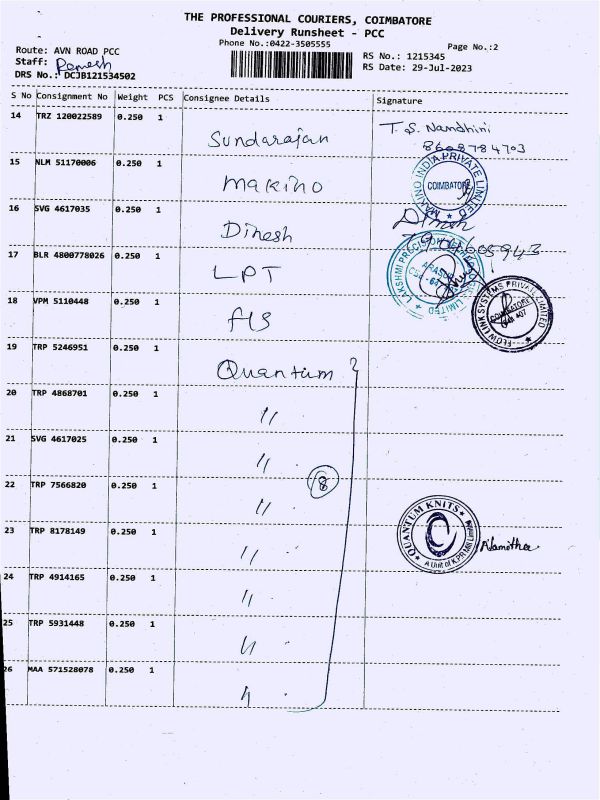 THE PROFESSIONAL COURIERS, COIMBATORE
Delivery Runsheet - PCC
Phone No.:0422-3505555
Page No.:2
Route: AVN ROAD PCC
RS No.: 1215345
Staff: Ramesh
RS Date: 29-Jul-2023
DRS No.: DCJB121534502
S No Consignment No Weight PCS Consignee Details Signature
14 TRZ 120022589 0.250 1 Sundarajan T. S. Nandhini
8608784703
15 NLM 51170006 0.250 1 Makino
MAKINO INDIA PRIVATE LIMITED
COIMBATORE
16 SVG 4617035 0.250 1 Dinesh Dinesh
17 BLR 4800778026 0.250 1 LPT
LAKSHMI PRECISION LIMITED
18 VPM 5110448 0.250 1 fls
FLOW LINK SYSTEMS PRIVATE LIMITED
COIMBATORE
19 TRP 5246951 0.250 1 Quantum
20 TRP 4868701 0.250 1 "
21 SVG 4617025 0.250 1 "
8
22 TRP 7566820 0.250 1 "
QUANTUM KNITS
23 TRP 8178149 0.250 1 "
24 TRP 4914165 0.250 1 "
25 TRP 5931448 0.250 1 "
26 MAA 571528078 0.250 1 "